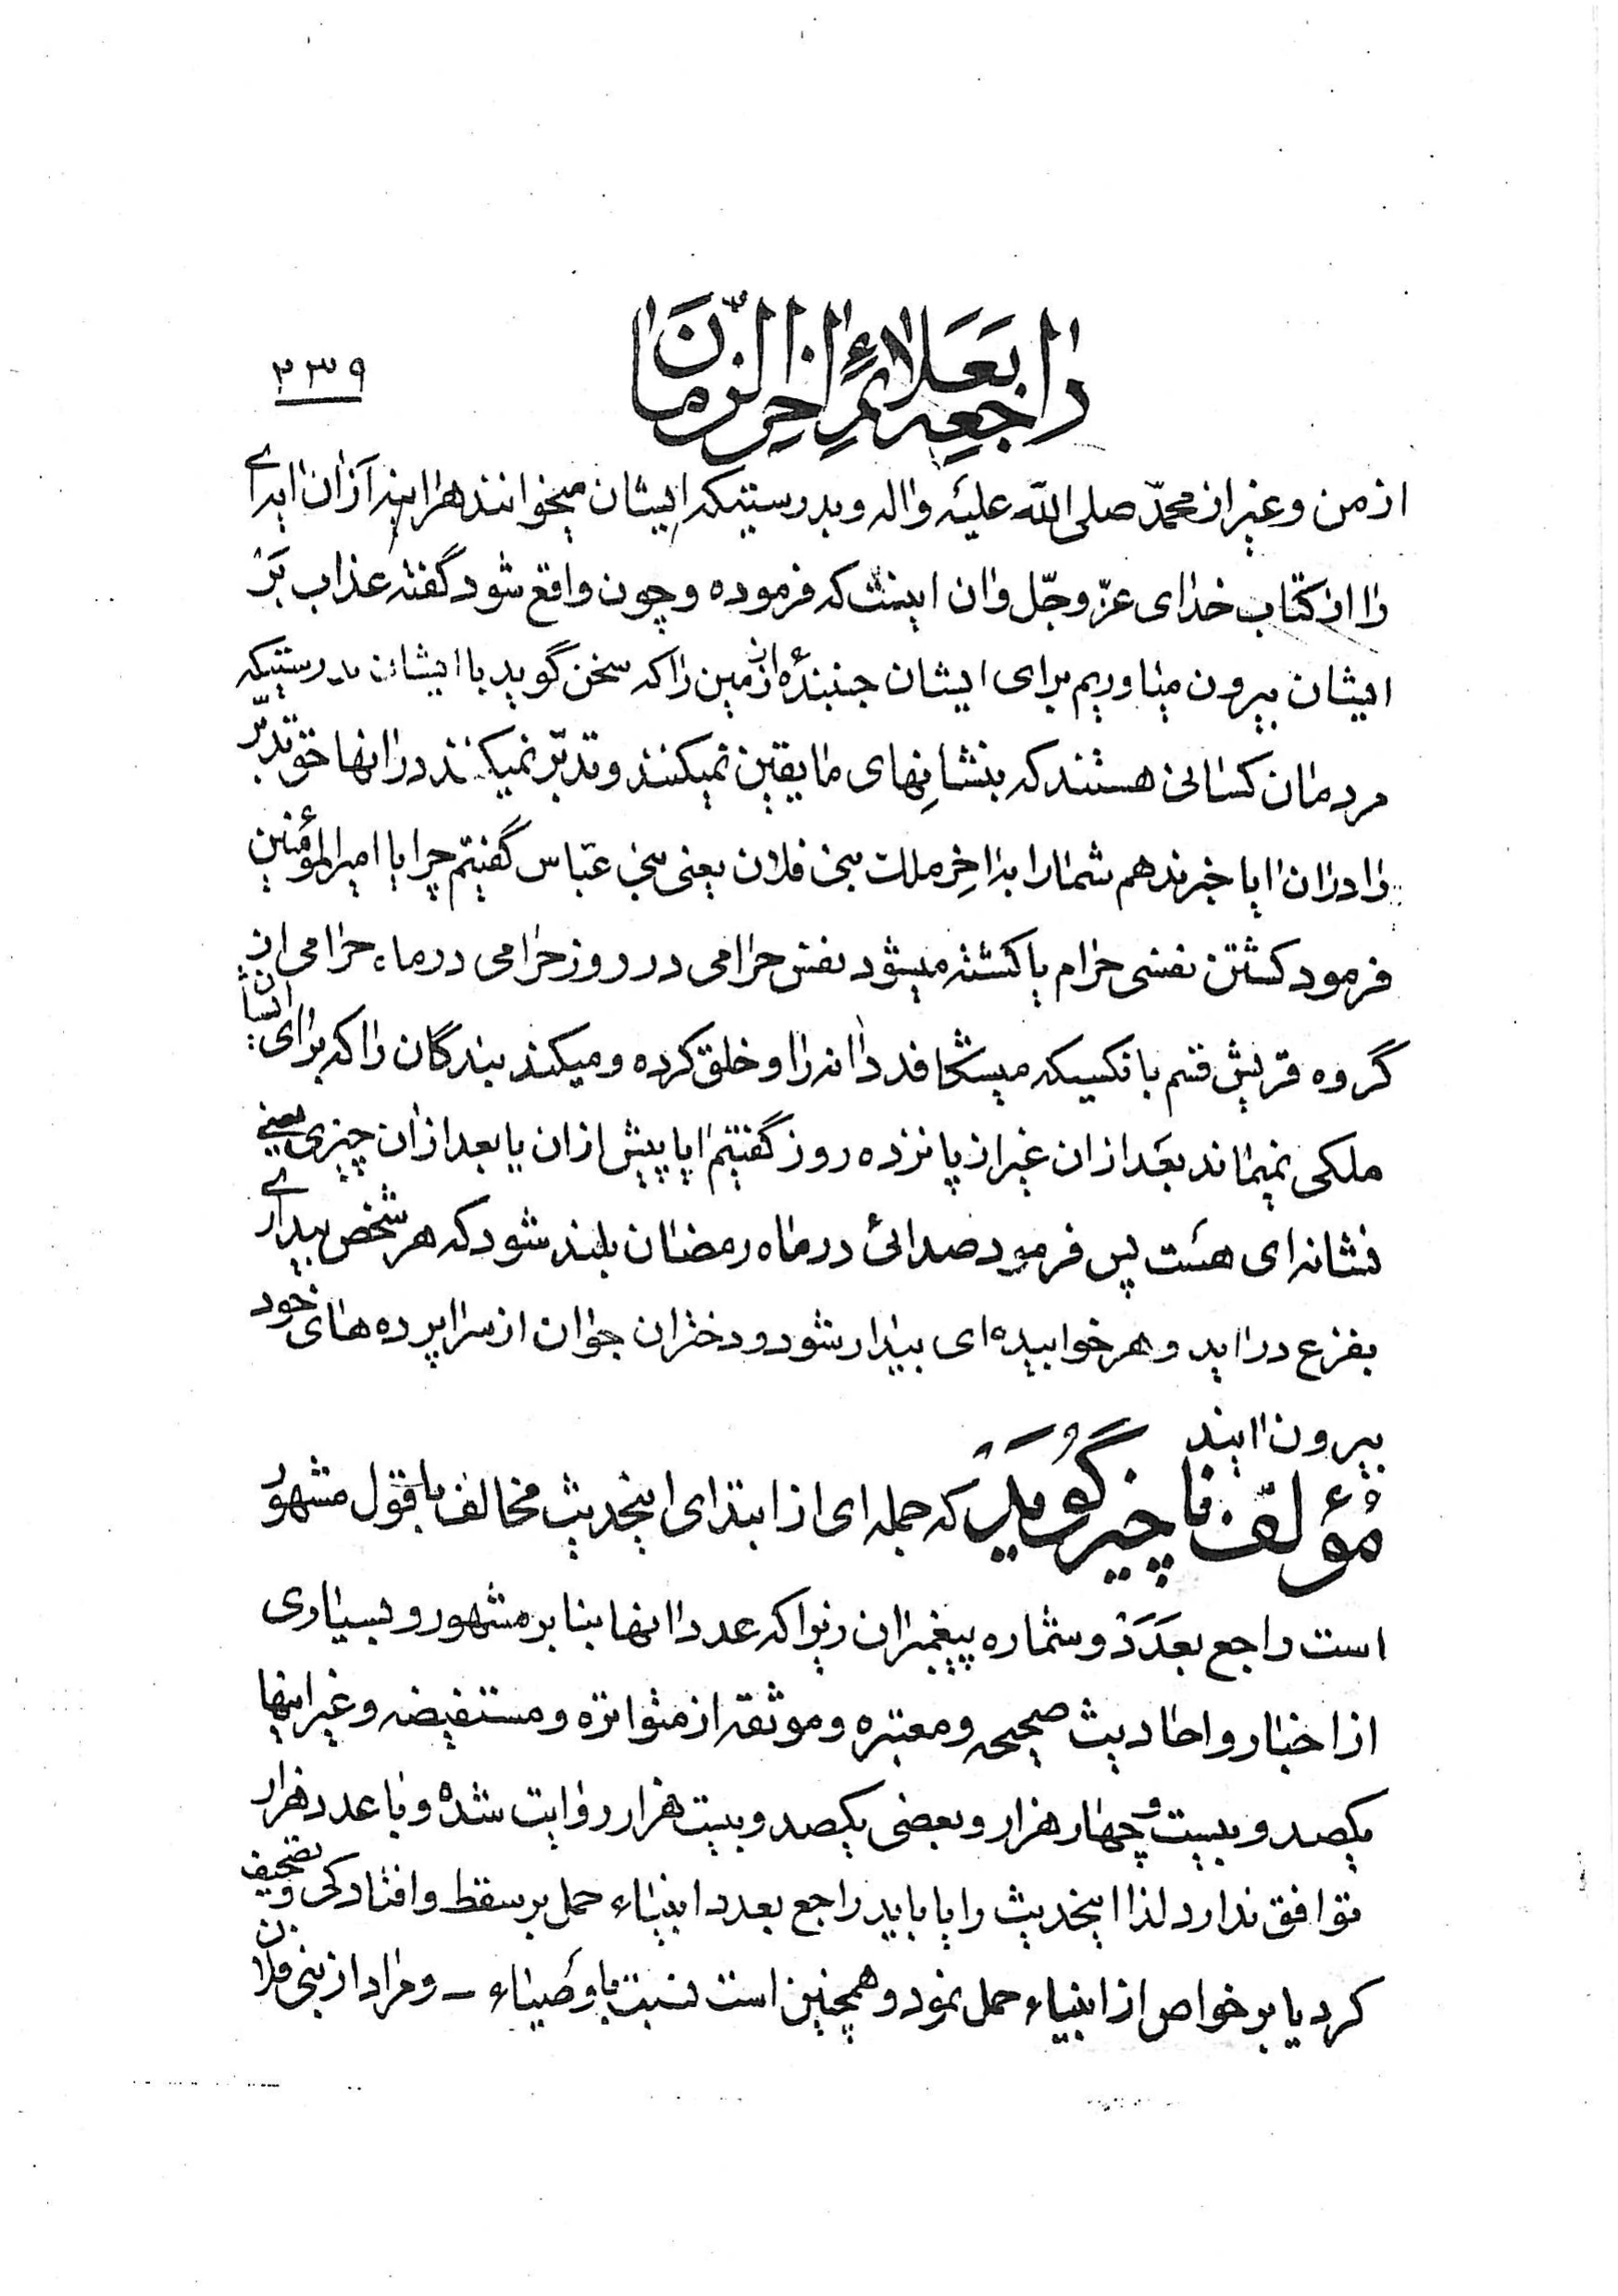 راجعه بعلائم آخر الزّمان
۲۳۹
از من و غیر از محمّد صلی الله علیه واله و بدرستیکه ایشان میخوانند هراینه آزان ایه‌ای
را از کتاب خدای عزّ وجّل وان اینست که فرموده و چون واقع شود گفته عذاب بر
ایشان بیرون میاوریم برای ایشان جنبندۀ از زمین را که سخن گوید با ایشان بدرستیکه
مردمان کسانی هستند که بنشانهای ما یقین نمیکنند و تدبّر نمیکنند در انها حق تدبّر
را در ان ایا خبر ندهم شما را باخر ملک بنی فلان یعنی بنی عبّاس گفتیم چرا یا امیرالمؤمنین
فرمود کشتن نفسی حرام یا کشته میشود نفس حرامی در روز حرامی در ماه حرامی از
گروه قریش قسم بانکسیکه میشکافد دانه را و خلق کرده و میکند بندگان را که برای ایشان
ملکی نمیماند بعد از ان غیر از پانزده روز گفتیم ایا پیش از ان یا بعد از ان چیزی یعنی
نشانه ای هست پس فرمود صدائی در ماه رمضان بلند شود که هر شخص بیداری
بفزع دراید و هر خوابیده‌ای بیدار شود و دختران جوان از سراپرده های خود
بیرون ایند
مؤلّف ناچیز گوید که جمله ای از ابتدای اینحدیث مخالف با قول مشهور
است راجع بعدد و شماره پیغمبران زیرا که عدد انها بنا بر مشهور و بسیاری
از اخبار و احادیث صحیحه و معتبره و موثقه از متواتره و مستفیضه و غیر اینها
یکصد و بیست و چهار هزار و بعضی یکصد و بیست هزار روایت شده و با عدد هزار
توافق ندارد لذا اینحدیث را یا باید راجع بعدد انبیاء حمل بر سقط و افتادکی و تصحیف
کرد یا بر خواص از انبیاء حمل نمود و همچنین است نسبت باوصیاء – و مراد از بنی فلان